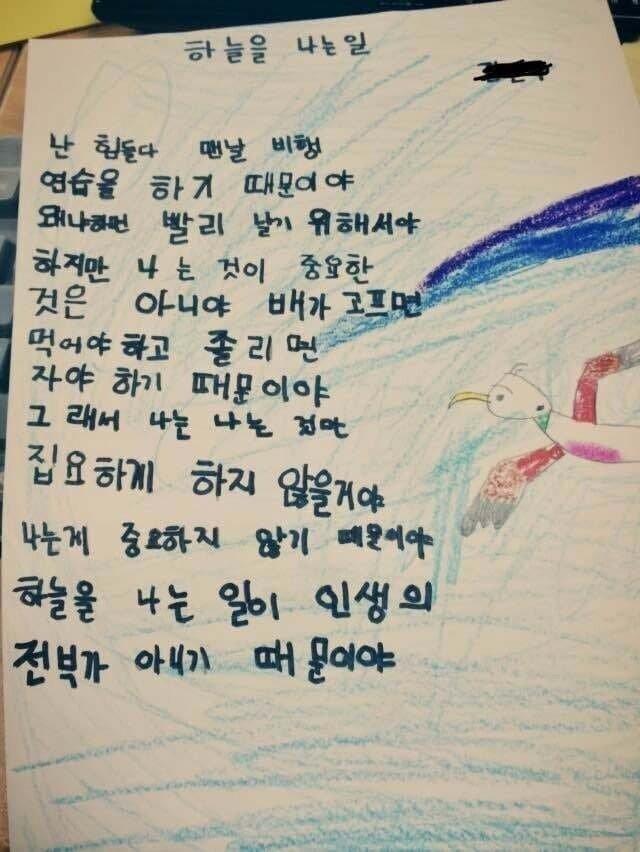 하늘을 나는일
난 힘들다 맨날 비행
연습을 하기 때문이야
왜냐하면 빨리 날기 위해서야
하지만 나 는 것이 중요한
것은 아니야 배가 고프면
먹어야 하고 졸리면
자야 하기 때문이야
그래서 나는 나는 것만
집요하게 하지 않을거야
나는게 중요하지 않기 때문이야
하늘을 나는 일이 인생의
전부가 아니기 때문이야